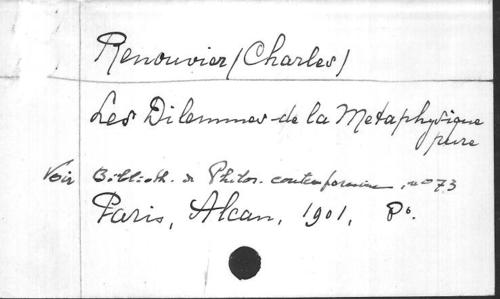 Renouvier (Charles)
Les Dilemmes de la Metaphysique
pure
Voir Biblioth. de Philos. contemporaine, no 73
Paris, Alcan, 1901, 8o.